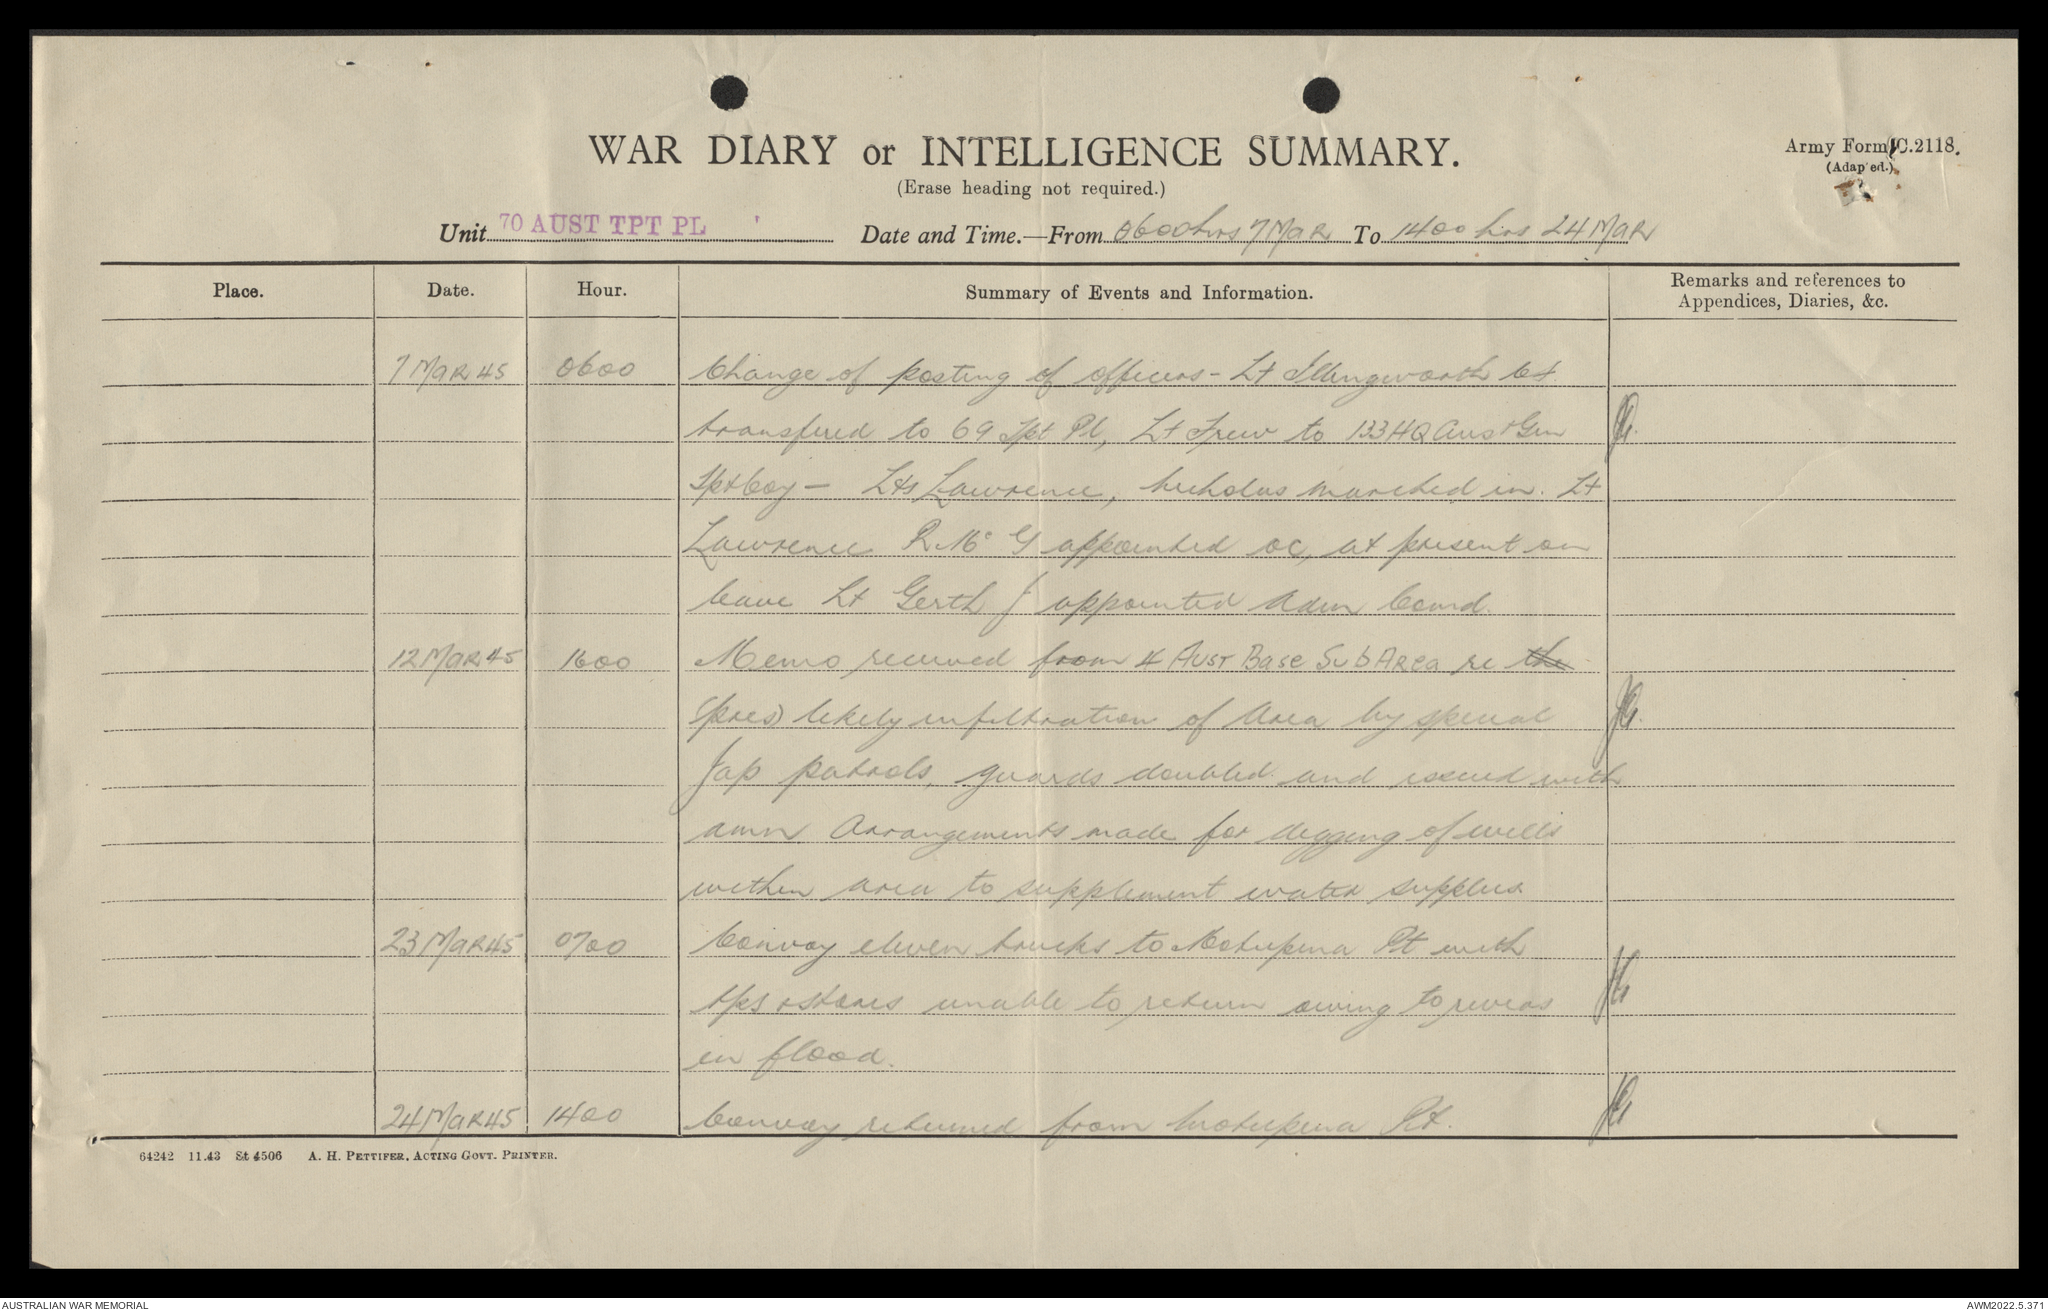 WAR DIARY or INTELLIGENCE SUMMARY.
(Erase heading not required.)
Army Form C.2118.
(Adap ed.)
Unit 70 AUST TPT PL Date and Time.—From 0600hrs 7 MAR To 1400 hrs 24 MAR
Place. Date. Hour. Summary of Events and Information. Remarks and references to
Appendices, Diaries, &c.
7 MAR 45 0600 Change of posting of officers - Lt Illingworth
transfered to 69 Tpt Pl, Lt Frew to 133 HQ Aust Gen
Tpt Coy - Lts Lawrence, Nicholas marched in. Lt
Lawrence R. Mc G appointed OC, at present on
leave Lt Gerth J appointed Adm Comd.
12 MAR 45 1600 Memo received from 4 AUST BASE SUB AREA re the
(pres) likely infiltration of Area by special
Jap patrols, guards doubled and issued with
amn. Arrangements made for digging of wells
within area to supplement water supplies
23 MAR 45 0700 Convoy eleven trucks to Motupena Pt with
tps & stores unable to return owing to rivers
in flood.
24 MAR 45 1400 Convoy returned from Motupena Pt.
64242 11.43 St 4506 A. H. PETTIFER, ACTING GOVT. PRINTER.
AUSTRALIAN WAR MEMORIAL AWM2022.5.371